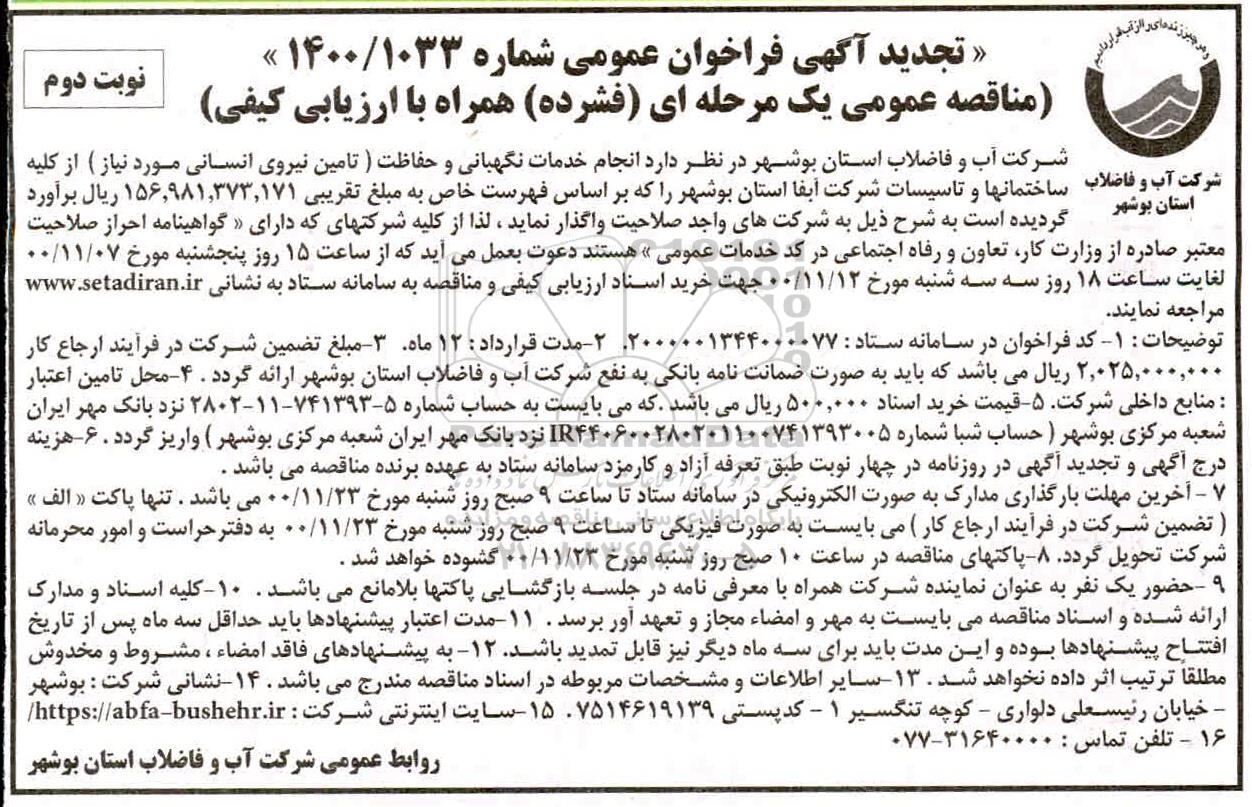 و هر چیز زنده‌ای را از آب قرار دادیم
شرکت آب و فاضلاب
استان بوشهر
نوبت دوم
« تجدید آگهی فراخوان عمومی شماره ۱۴۰۰/۱۰۳۳ »
(مناقصه عمومی یک مرحله ای (فشرده) همراه با ارزیابی کیفی)
شرکت آب و فاضلاب استان بوشهر در نظر دارد انجام خدمات نگهبانی و حفاظت ( تامین نیروی انسانی مورد نیاز ) از کلیه
ساختمانها و تاسیسات شرکت آبفا استان بوشهر را که بر اساس فهرست خاص به مبلغ تقریبی ۱۵۶,۹۸۱,۳۷۳,۱۷۱ ریال برآورد
گردیده است به شرح ذیل به شرکت های واجد صلاحیت واگذار نماید ، لذا از کلیه شرکتهای که دارای « گواهینامه احراز صلاحیت
معتبر صادره از وزارت کار، تعاون و رفاه اجتماعی در کد خدمات عمومی » هستند دعوت بعمل می آید که از ساعت ۱۵ روز پنجشنبه مورخ ۰۰/۱۱/۰۷
لغایت ساعت ۱۸ روز سه سه شنبه مورخ ۰۰/۱۱/۱۲ جهت خرید اسناد ارزیابی کیفی و مناقصه به سامانه ستاد به نشانی www.setadiran.ir
مراجعه نمایند.
توضیحات : ۱- کد فراخوان در سامانه ستاد : ۲۰۰۰۰۰۱۳۴۴۰۰۰۰۷۷. ۲-مدت قرارداد : ۱۲ ماه. ۳-مبلغ تضمین شرکت در فرآیند ارجاع کار
۲,۰۲۵,۰۰۰,۰۰۰ ریال می باشد که باید به صورت ضمانت نامه بانکی به نفع شرکت آب و فاضلاب استان بوشهر ارائه گردد . ۴-محل تامین اعتبار
: منابع داخلی شرکت. ۵-قیمت خرید اسناد ۵۰۰,۰۰۰ ریال می باشد .که می بایست به حساب شماره ۵-۷۴۱۳۹۳-۱۱-۲۸۰۲ نزد بانک مهر ایران
شعبه مرکزی بوشهر ( حساب شبا شماره IR۴۴۰۶۰۰۲۸۰۲۰۱۱۰۰۷۴۱۳۹۳۰۰۵ نزد بانک مهر ایران شعبه مرکزی بوشهر ) واریز گردد . ۶-هزینه
درج آگهی و تجدید آگهی در روزنامه در چهار نوبت طبق تعرفه آزاد و کارمزد سامانه ستاد به عهده برنده مناقصه می باشد .
۷ - آخرین مهلت بارگذاری مدارک به صورت الکترونیکی در سامانه ستاد تا ساعت ۹ صبح روز شنبه مورخ ۰۰/۱۱/۲۳ می باشد . تنها پاکت « الف »
( تضمین شرکت در فرآیند ارجاع کار ) می بایست به صورت فیزیکی تا ساعت ۹ صبح روز شنبه مورخ ۰۰/۱۱/۲۳ به دفترحراست و امور محرمانه
شرکت تحویل گردد. ۸-پاکتهای مناقصه در ساعت ۱۰ صبح روز شنبه مورخ ۰۰/۱۱/۲۳ گشوده خواهد شد .
۹ -حضور یک نفر به عنوان نماینده شرکت همراه با معرفی نامه در جلسه بازگشایی پاکتها بلامانع می باشد . ۱۰-کلیه اسناد و مدارک
ارائه شده و اسناد مناقصه می بایست به مهر و امضاء مجاز و تعهد آور برسد . ۱۱-مدت اعتبار پیشنهادها باید حداقل سه ماه پس از تاریخ
افتتاح پیشنهادها بوده و این مدت باید برای سه ماه دیگر نیز قابل تمدید باشد. ۱۲- به پیشنهادهای فاقد امضاء ، مشروط و مخدوش
مطلقاً ترتیب اثر داده نخواهد شد . ۱۳-سایر اطلاعات و مشخصات مربوطه در اسناد مناقصه مندرج می باشد . ۱۴-نشانی شرکت : بوشهر
- خیابان رئیسعلی دلواری - کوچه تنگسیر ۱ - کدپستی ۷۵۱۴۶۱۹۱۳۹. ۱۵-سایت اینترنتی شرکت : https://abfa-bushehr.ir/
۱۶ - تلفن تماس : ۳۱۶۴۰۰۰۰-۰۷۷
روابط عمومی شرکت آب و فاضلاب استان بوشهر